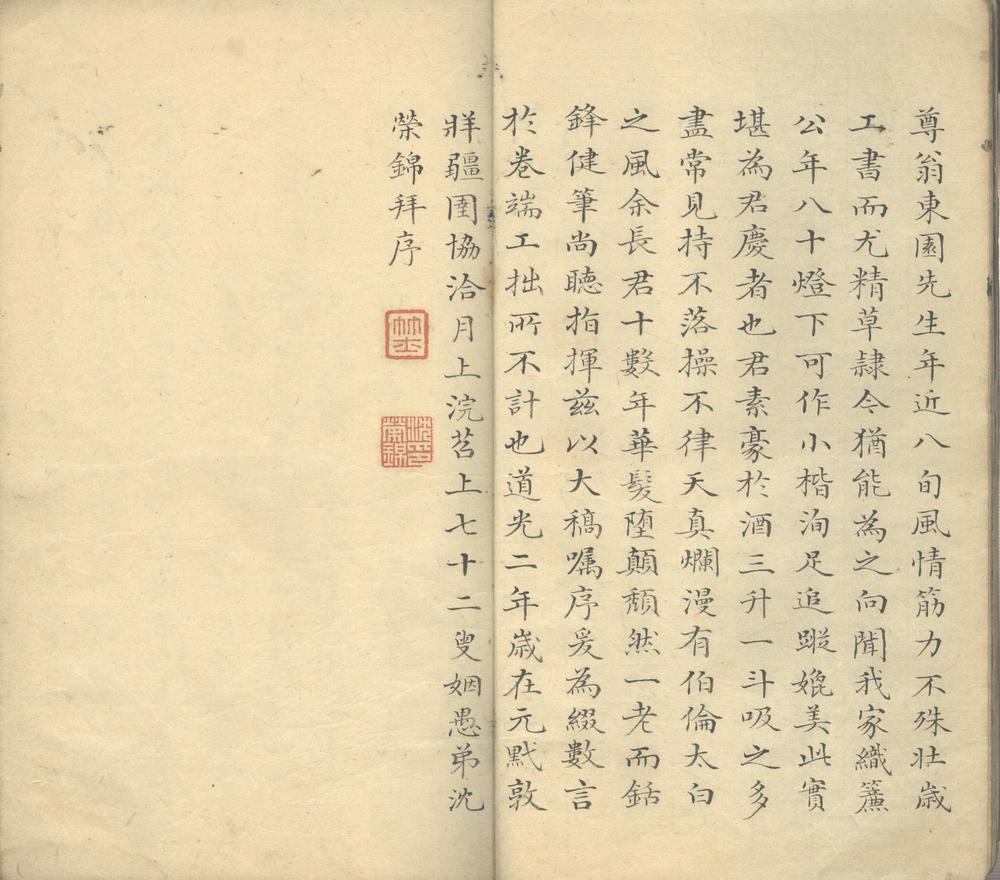 尊翁東園先生年近八旬風情筋力不殊壯歳
工書而尤精草隷今猶能為之向聞我家織簾
公年八十燈下可作小楷洵足追蹤媲美此實
堪為君慶者也君素豪於酒三升一斗吸之多
盡常見持不落操不律天真爛漫有伯倫太白
之風余長君十數年華髮墮顛頽然一老而銛
鋒健筆尚聽指揮兹以大稿嘱序爰為綴數言
於卷端工拙所不計也道光二年歳在元黓敦
牂疆圉協洽月上浣苕上七十二叟姻愚弟沈
榮錦拜序
沈榮錦印